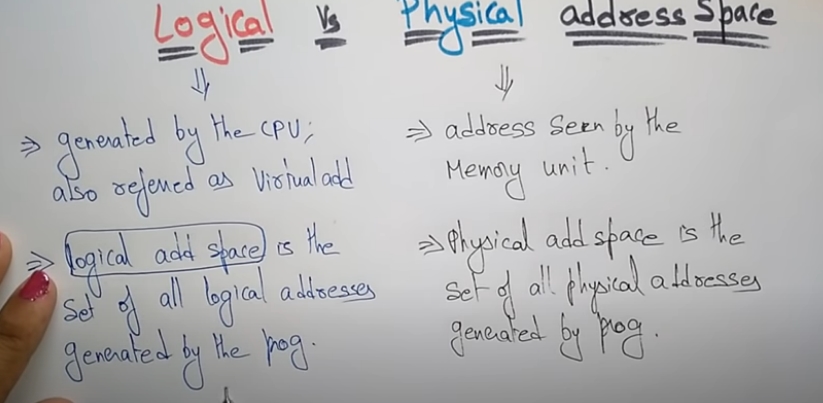 Logical Vs Physical address Space
⇒ generated by the CPU;
also refered as Virtual add
⇒ logical add space is the
set of all logical addresses
generated by the prog.
⇒ address seen by the
Memory unit.
⇒ Physical add space is the
set of all physical addresses
generated by prog.